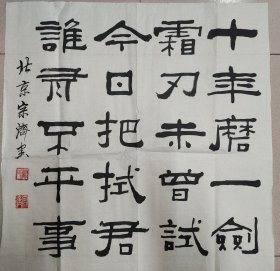 十年磨一劍
霜刃未曾試
今日把拭君
誰為不平事
北京宗濟書